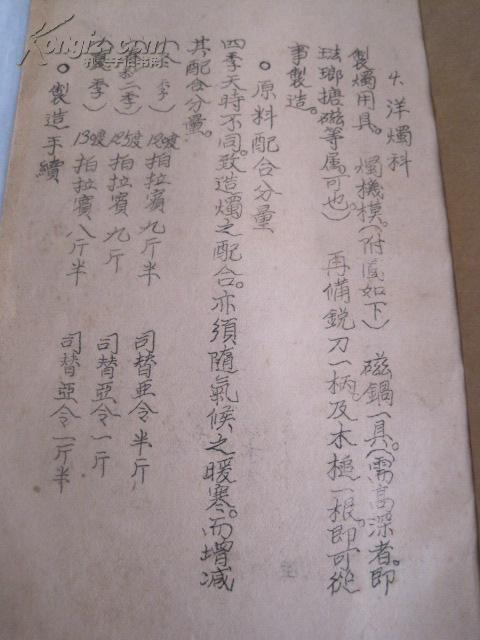 4. 洋燭科
製燭用具。 燭機模。(附圖如下) 磁鍋一具。(需高深者。即
琺瑯搪磁等属可也) 再備銳刀一柄。及木槌一根。即可從
事製造。
○ 原料配合分量
四季天時不同。致造燭之配合。亦須隨氣候之暖寒。而增减
其配合分量。
季) 拍拉賓九斤半 司替亞令半斤
二季) 拍拉賓九斤 司替亞令一斤
季) 13 拍拉賓八斤半 司替亞令一斤半
○ 製造手續
Kongfz.com
孔夫子旧书网